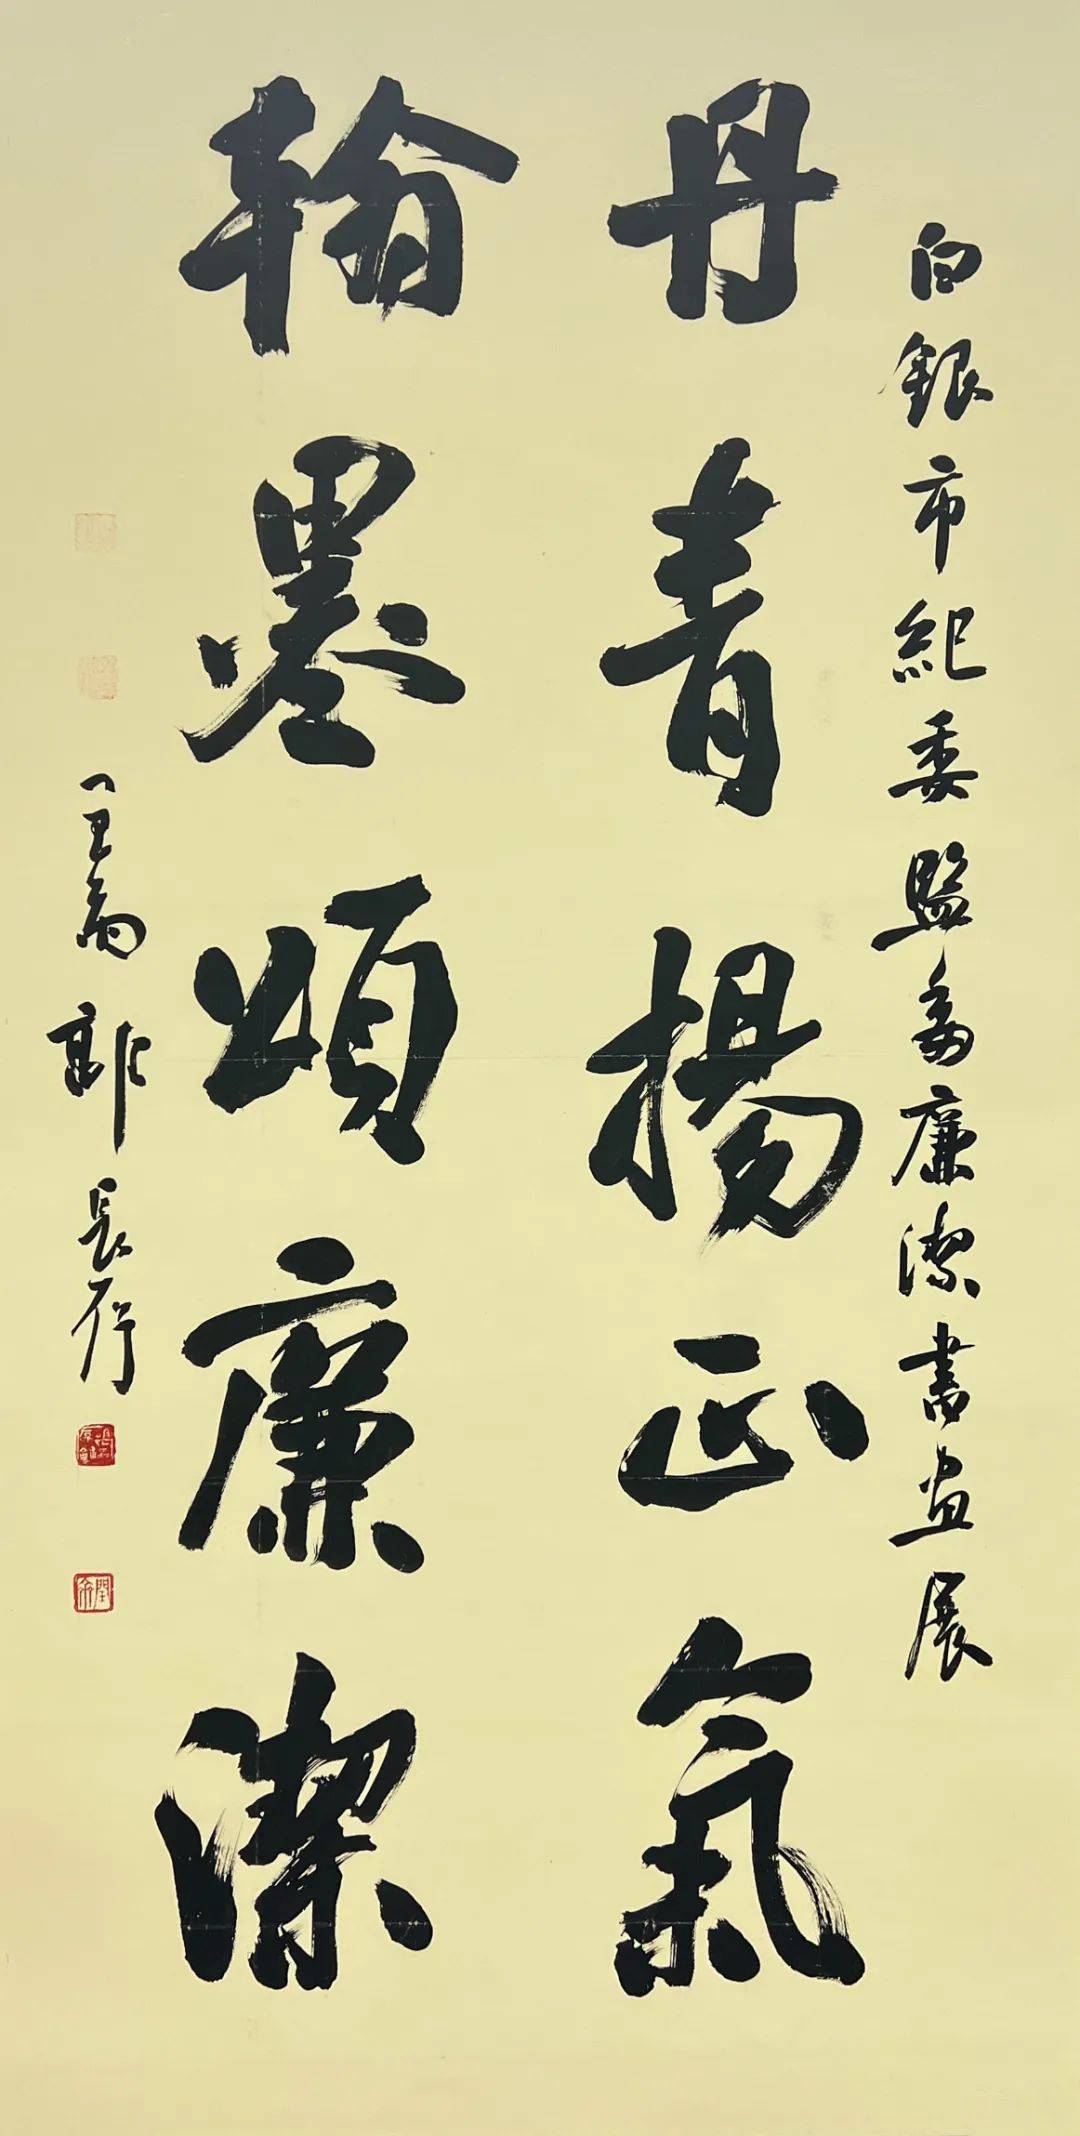 白銀市紀委監委廉潔書畫展
丹青揚正氣
翰墨頌廉潔